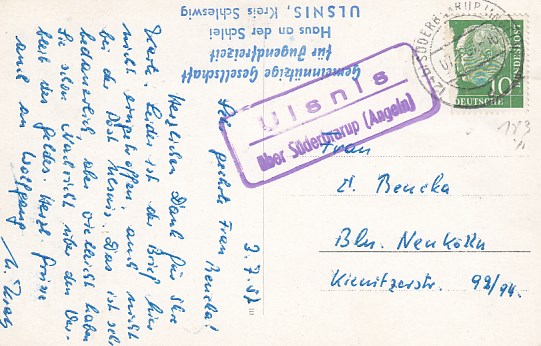 Gemeinnützige Gesellschaft
für Jugendfreizeit
Haus an der Schlei
ULSNIS, Kreis Schleswig
Ulsnis
über Süderbrarup (Angeln)
DEUTSCHE BUNDESPOST
10
3.7.57
Sehr geehrte Frau Bencka!
Herzlichen Dank für Ihre
Karte. Leider ist der Brief hier
nicht eingetroffen, auch nicht
bei der Post Ulsnis. Das ist sehr
bedauerlich, aber vielleicht haben
Sie schon Nachricht über den Ver-
bleib des Geldes. Herzl. Grüsse
auch an Wolfgang
Frau
Bencka
Bln. Neukölln
Kienitzerstr. 92/94.